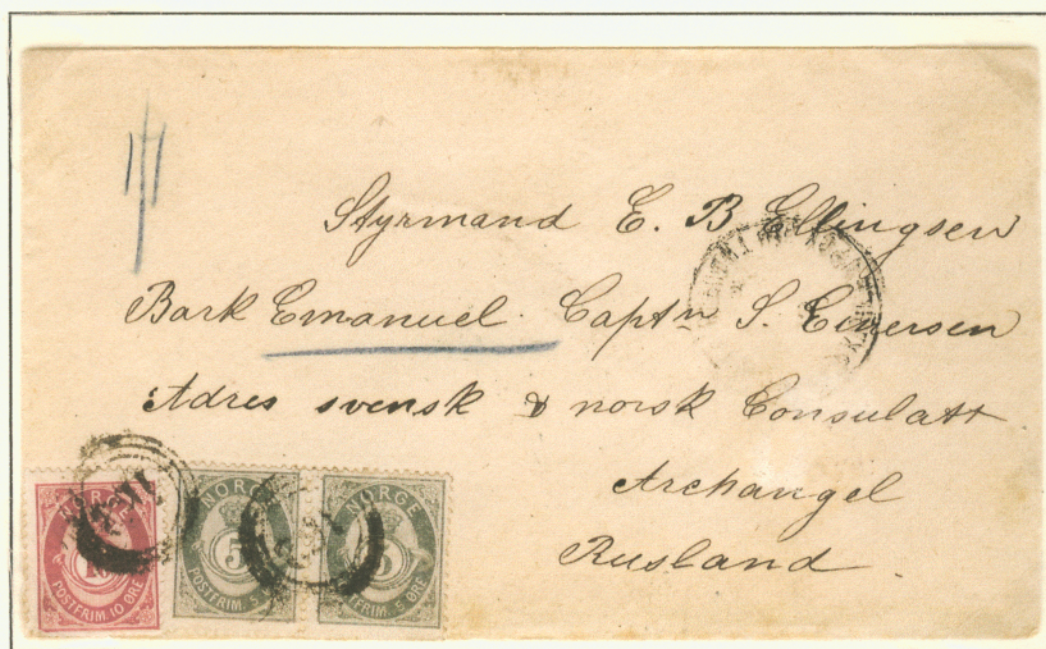 Styrmand E. B Ellingsen
Bark Emanuel. Captn S. Einersen
Adres svensk & norsk Consulatt
Archangel
Rusland.
NORGE
10
POSTFRIM. 10 ØRE
NORGE
5
POSTFRIM. 5
NORGE
5
POSTFRIM. 5 ØRE